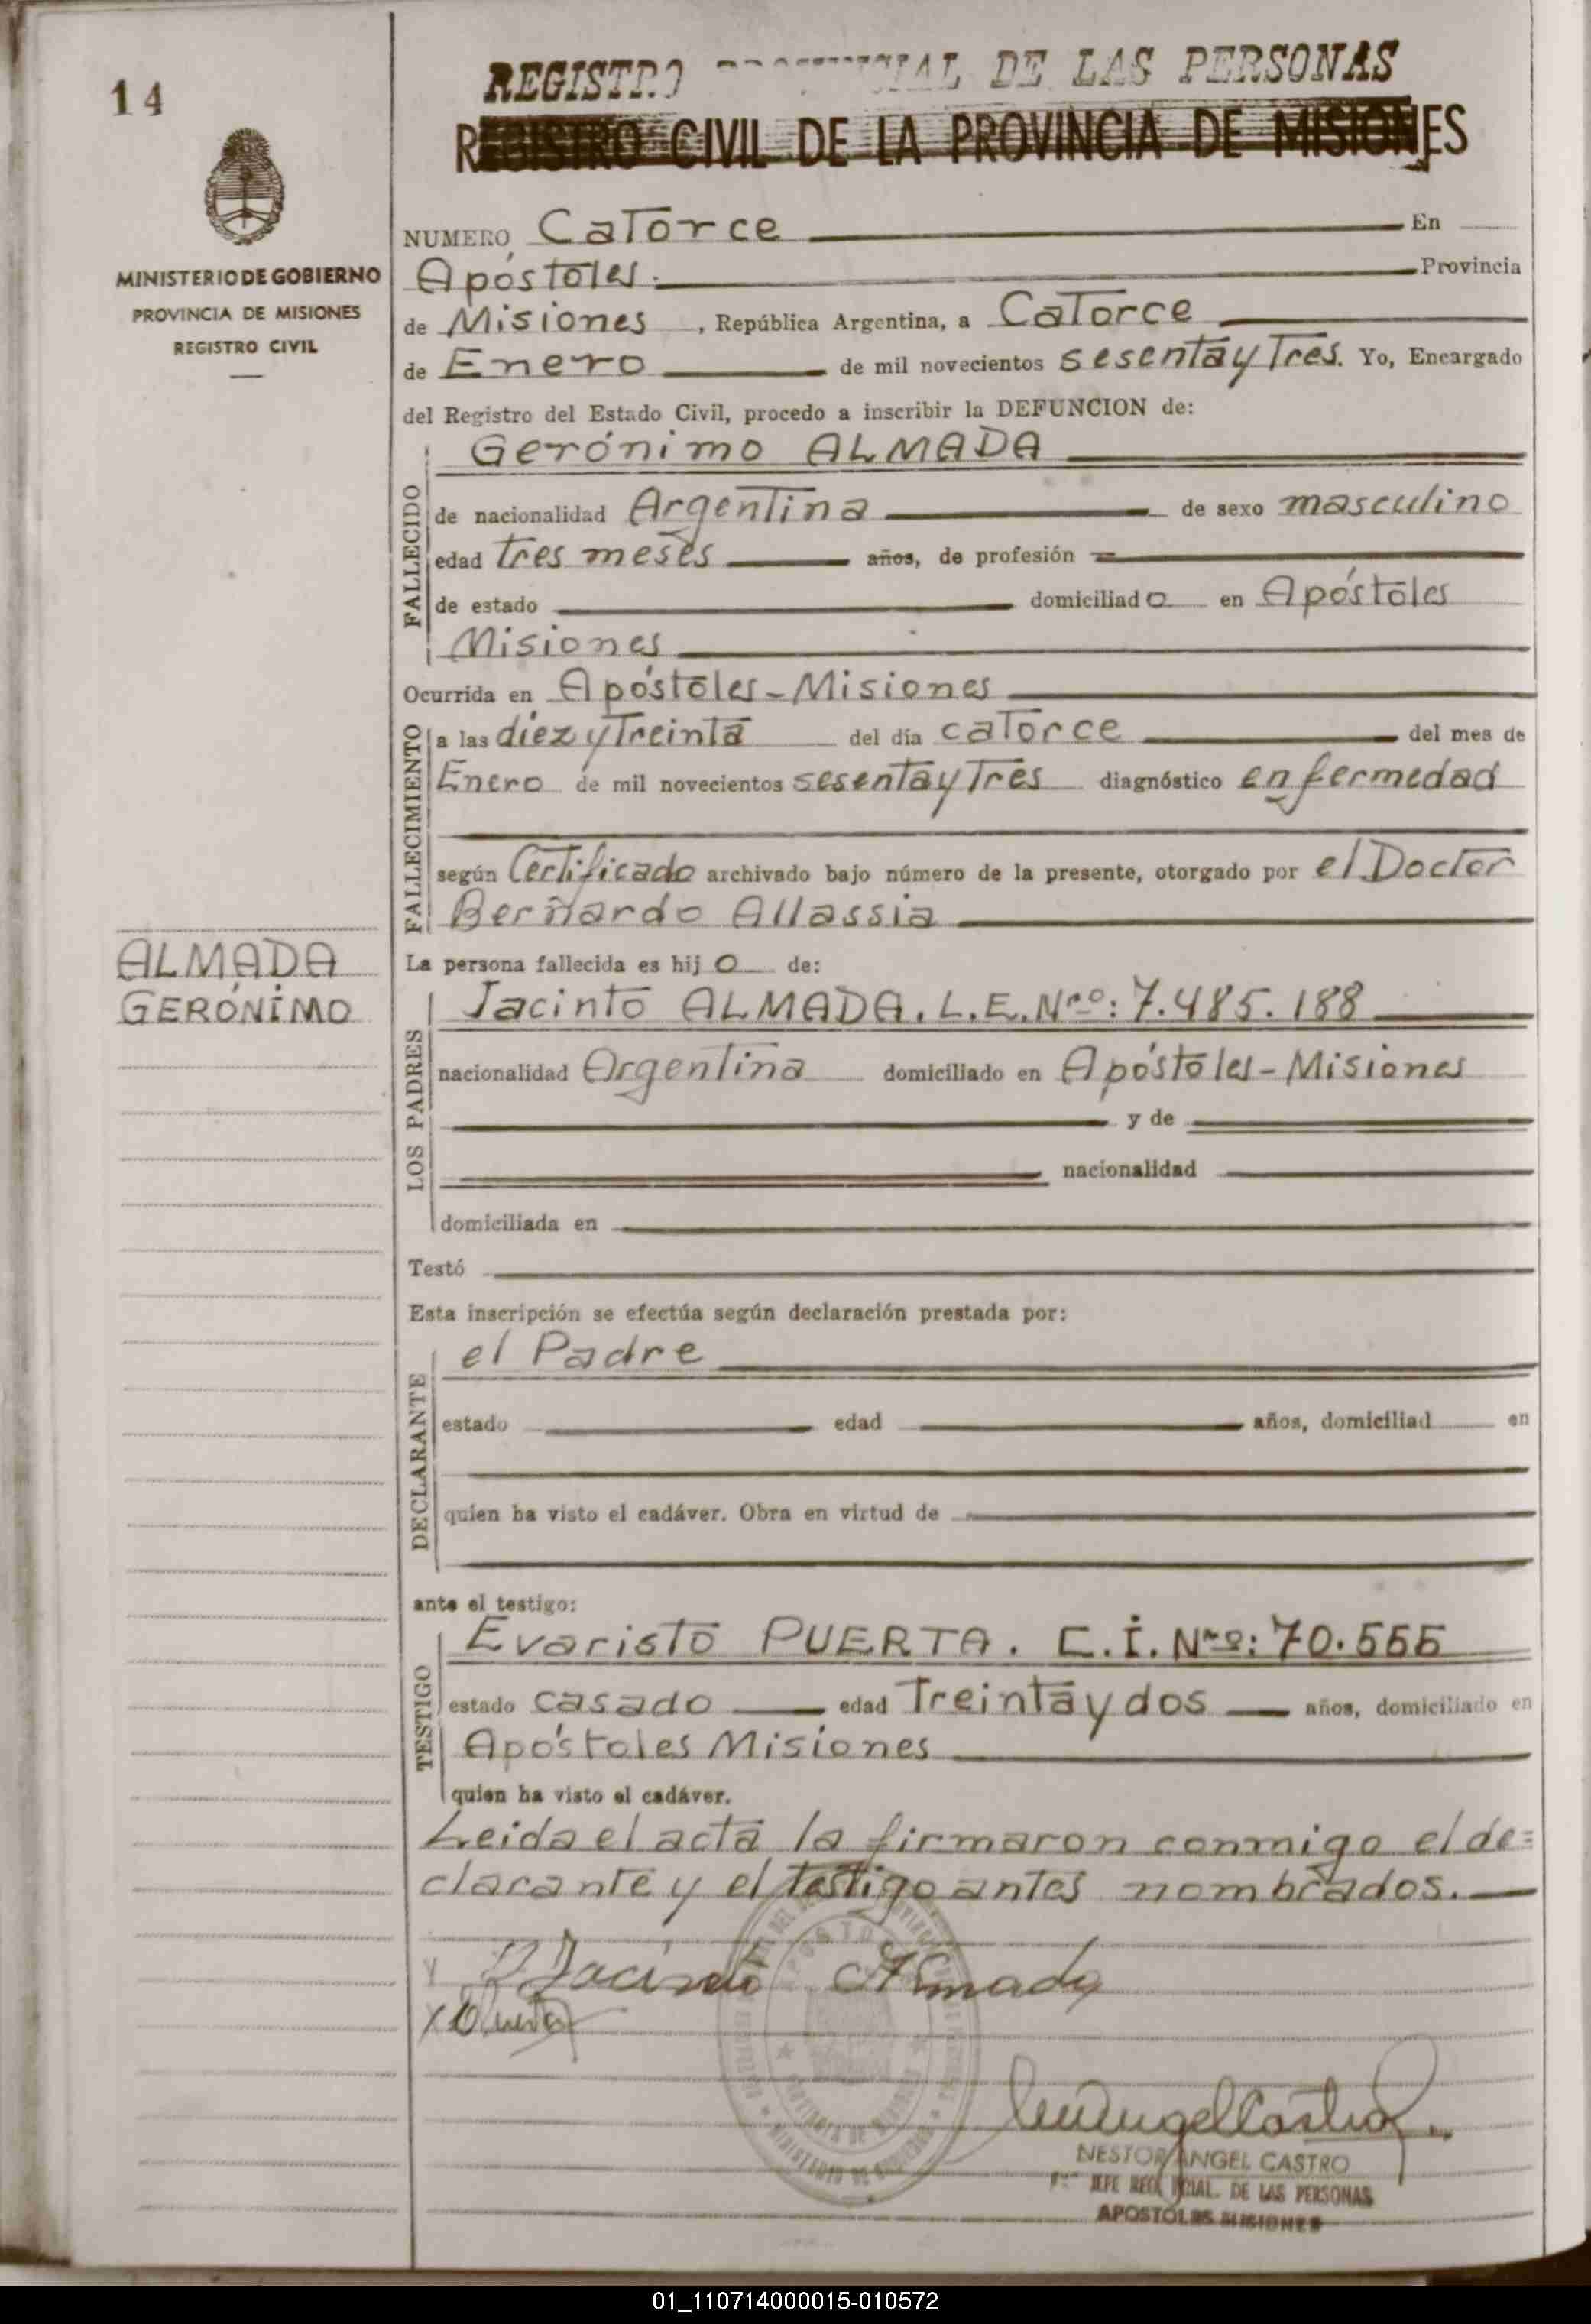 14
REGISTRO PROVINCIAL DE LAS PERSONAS
REGISTRO CIVIL DE LA PROVINCIA DE MISIONES
MINISTERIO DE GOBIERNO
PROVINCIA DE MISIONES
REGISTRO CIVIL
NUMERO Catorce En
Apóstoles. Provincia
de Misiones, República Argentina, a Catorce
de Enero de mil novecientos sesenta y Tres. Yo, Encargado
del Registro del Estado Civil, procedo a inscribir la DEFUNCION de:
FALLECIDO
Gerónimo ALMADA
de nacionalidad Argentina de sexo masculino
edad tres meses años, de profesión
de estado domiciliado en Apóstoles
Misiones
Ocurrida en Apóstoles - Misiones
FALLECIMIENTO
a las diez y Treinta del día catorce del mes de
Enero de mil novecientos sesenta y Tres diagnóstico enfermedad
según Certificado archivado bajo número de la presente, otorgado por el Doctor
Bernardo Allassia
ALMADA
GERÓNIMO
La persona fallecida es hijo de:
LOS PADRES
Jacinto ALMADA. L.E. Nro: 7.485.188
nacionalidad Argentina domiciliado en Apóstoles - Misiones
y de
nacionalidad
domiciliada en
Testó
Esta inscripción se efectúa según declaración prestada por:
DECLARANTE
el Padre
estado edad años, domiciliad en
quien ha visto el cadáver. Obra en virtud de
ante el testigo:
TESTIGO
Evaristo PUERTA. C.I. Nro: 70.555
estado casado edad Treinta y dos años, domiciliado en
Apóstoles Misiones
quien ha visto el cadáver.
Leida el acta la firmaron conmigo el de=
clarante y el testigo antes nombrados.
Jacinto Almada
NESTOR ANGEL CASTRO
JEFE REG. PCIAL. DE LAS PERSONAS
APOSTOLES MISIONES
01_110714000015-010572